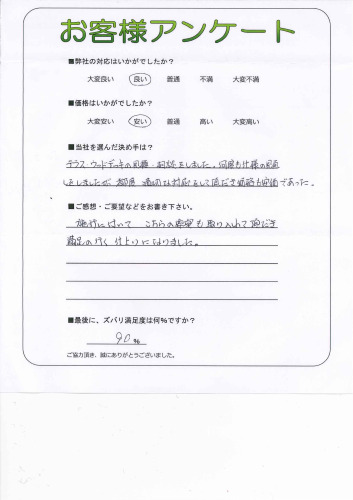 お客様アンケート
■弊社の対応はいかがでしたか?
大変良い 良い 普通 不満 大変不満
■価格はいかがでしたか?
大変安い 安い 普通 高い 大変高い
■当社を選んだ決め手は?
テラス・ウッドデッキの見積・相談をしました。何度も仕様の変更
をしましたが、都度、適切な対応をして頂だき価格も安価であった。
■ご感想・ご要望などをお書き下さい。
施行に付いて こちらの要望も取り入れて頂だき
満足の行く仕上りになりました。
■最後に、ズバリ満足度は何%ですか?
90%
ご協力頂き、誠にありがとうございました。